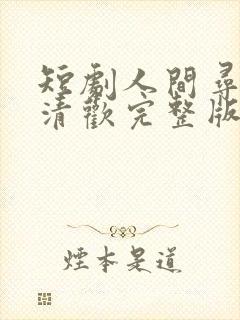 短劇人間尋
清歡完整版
煙本是道